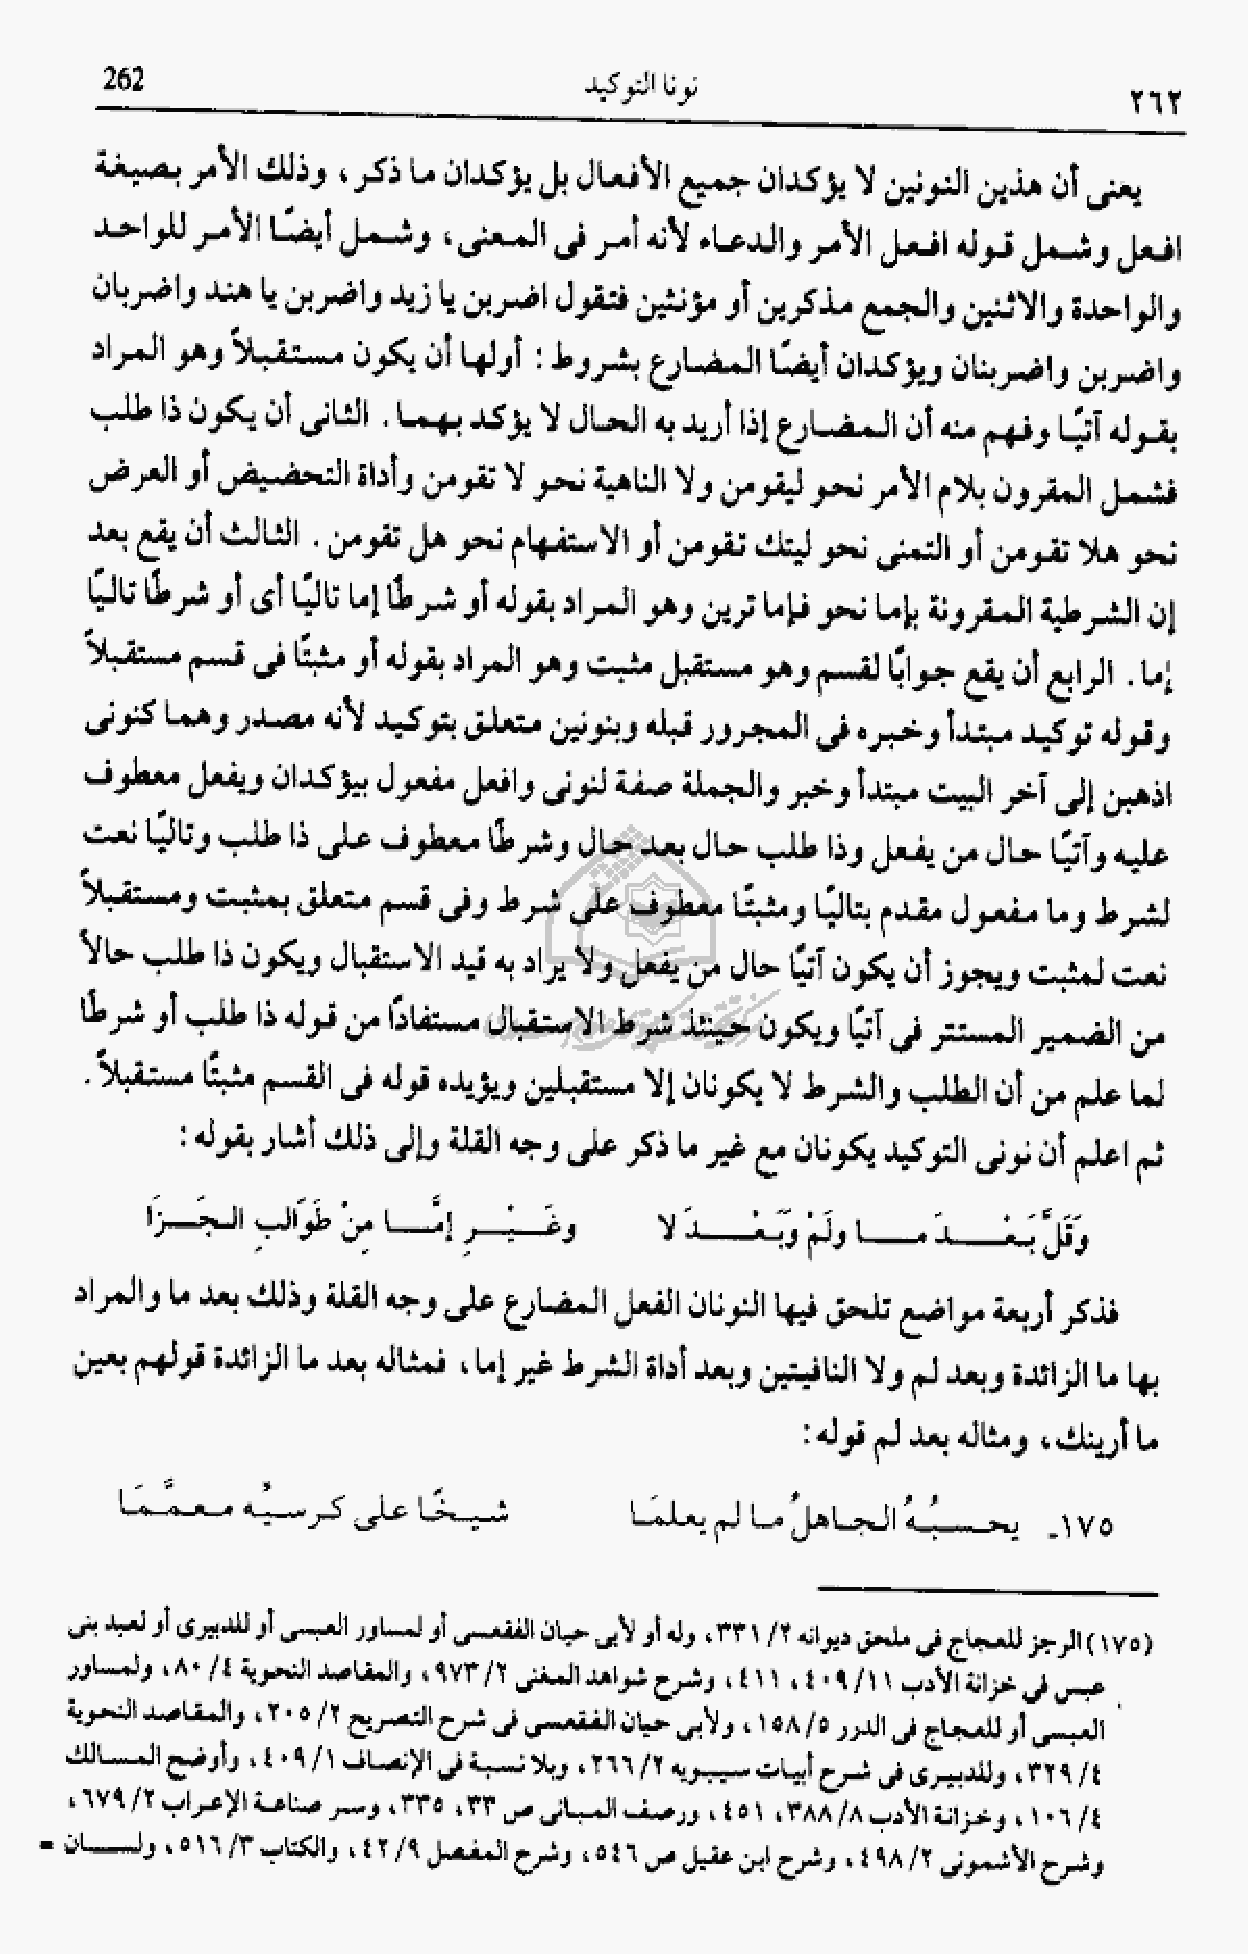 262
نونا التوكيد
٢٦٢
يعنى أن هذين النونين لا يؤكدان جميع الأفعال بل يؤكدان ما ذكر ، وذلك الأمر بصيغة
افعل وشمل قوله افعل الأمر والدعاء لأنه أمر فى المعنى ، وشمل أيضًا الأمر للواحد
والواحدة والاثنين والجمع مذكرين أو مؤنثين فتقول اضربن يا زيد واضربن يا هند واضربان
واضربن واضربنان ويؤكدان أيضًا المضارع بشروط : أولها أن يكون مستقبلاً وهو المراد
بقوله آتيًا وفهم منه أن المضارع إذا أريد به الحال لا يؤكد بهما . الثانى أن يكون ذا طلب
فشمل المقرون بلام الأمر نحو ليقومن ولا الناهية نحو لا تقومن وأداة التحضيض أو العرض
نحو هلا تقومن أو التمنى نحو ليتك تقومن أو الاستفهام نحو هل تقومن . الثالث أن يقع بعد
إن الشرطية المقرونة بإما نحو فإما ترين وهو المراد بقوله أو شرطًا إما تاليًا أى أو شرطًا تاليًا
إما . الرابع أن يقع جوابًا لقسم وهو مستقبل مثبت وهو المراد بقوله أو مثبتًا فى قسم مستقبلاً
وقوله توكيد مبتدأ وخبره فى المجرور قبله وبنونين متعلق بتوكيد لأنه مصدر وهما كنونى
اذهبن إلى آخر البيت مبتدأ وخبر والجملة صفة لنونى وافعل مفعول بيؤكدان ويفعل معطوف
عليه وآتيًا حال من يفعل وذا طلب حال بعد حال وشرطًا معطوف على ذا طلب وتاليًا نعت
لشرط وما مفعول مقدم بتاليًا ومثبتًا معطوف على شرط وفى قسم متعلق بمثبت ومستقبلاً
نعت لمثبت ويجوز أن يكون آتيًا حال من يفعل ولا يراد به قيد الاستقبال ويكون ذا طلب حالاً
من الضمير المستتر فى آتيًا ويكون حينئذ شرط الاستقبال مستفادًا من قوله ذا طلب أو شرطًا
لما علم من أن الطلب والشرط لا يكونان إلا مستقبلين ويؤيده قوله فى القسم مثبتًا مستقبلاً .
ثم اعلم أن نونى التوكيد يكونان مع غير ما ذكر على وجه القلة وإلى ذلك أشار بقوله :
وَقَلَّ بَعْدَ ما ولَمْ وَبَعْدَ لا وغَيْرِ إمَّا مِنْ طَوَالبِ الجَزَا
فذكر أربعة مواضع تلحق فيها النونان الفعل المضارع على وجه القلة وذلك بعد ما والمراد
بها ما الزائدة وبعد لم ولا النافيتين وبعد أداة الشرط غير إما ، فمثاله بعد ما الزائدة قولهم بعين
ما أرينك ، ومثاله بعد لم قوله :
١٧٥ـ يحسبُهُ الجاهلُ ما لم يعلمَا شيخًا على كرسيُه معمَّمَا
(١٧٥) الرجز للعجاج فى ملحق ديوانه ٢/ ٣٣١ ، وله أو لأبى حيان الفقعسى أو لمساور العبسى أو للدبيرى أو لعبد بنى
عبس فى خزانة الأدب ١١/ ٤٠٩ ، ٤١١ ، وشرح شواهد المغنى ٢/ ٩٧٣ ، والمقاصد النحوية ٤/ ٨٠ ، ولمساور
العبسى أو للعجاج فى الدرر ٥/ ١٥٨ ، ولأبى حيان الفقعسى فى شرح التصريح ٢/ ٢٠٥ ، والمقاصد النحوية
٤/ ٣٢٩ ، وللدبيرى فى شرح أبيات سيبويه ٢/ ٢٦٦ ، وبلا نسبة فى الإنصاف ١/ ٤٠٩ ، وأوضح المسالك
٤/ ١٠٦ ، وخزانة الأدب ٨/ ٣٨٨ ، ٤٥١ ، ورصف المبانى ص ٣٣ ، ٣٣٥ ، وسر صناعة الإعراب ٢/ ٦٧٩ ،
وشرح الأشمونى ٢/ ٤٩٨ ، وشرح ابن عقيل ص ٥٤٦ ، وشرح المفصل ٩/ ٤٢ ، والكتاب ٣/ ٥١٦ ، ولسان =